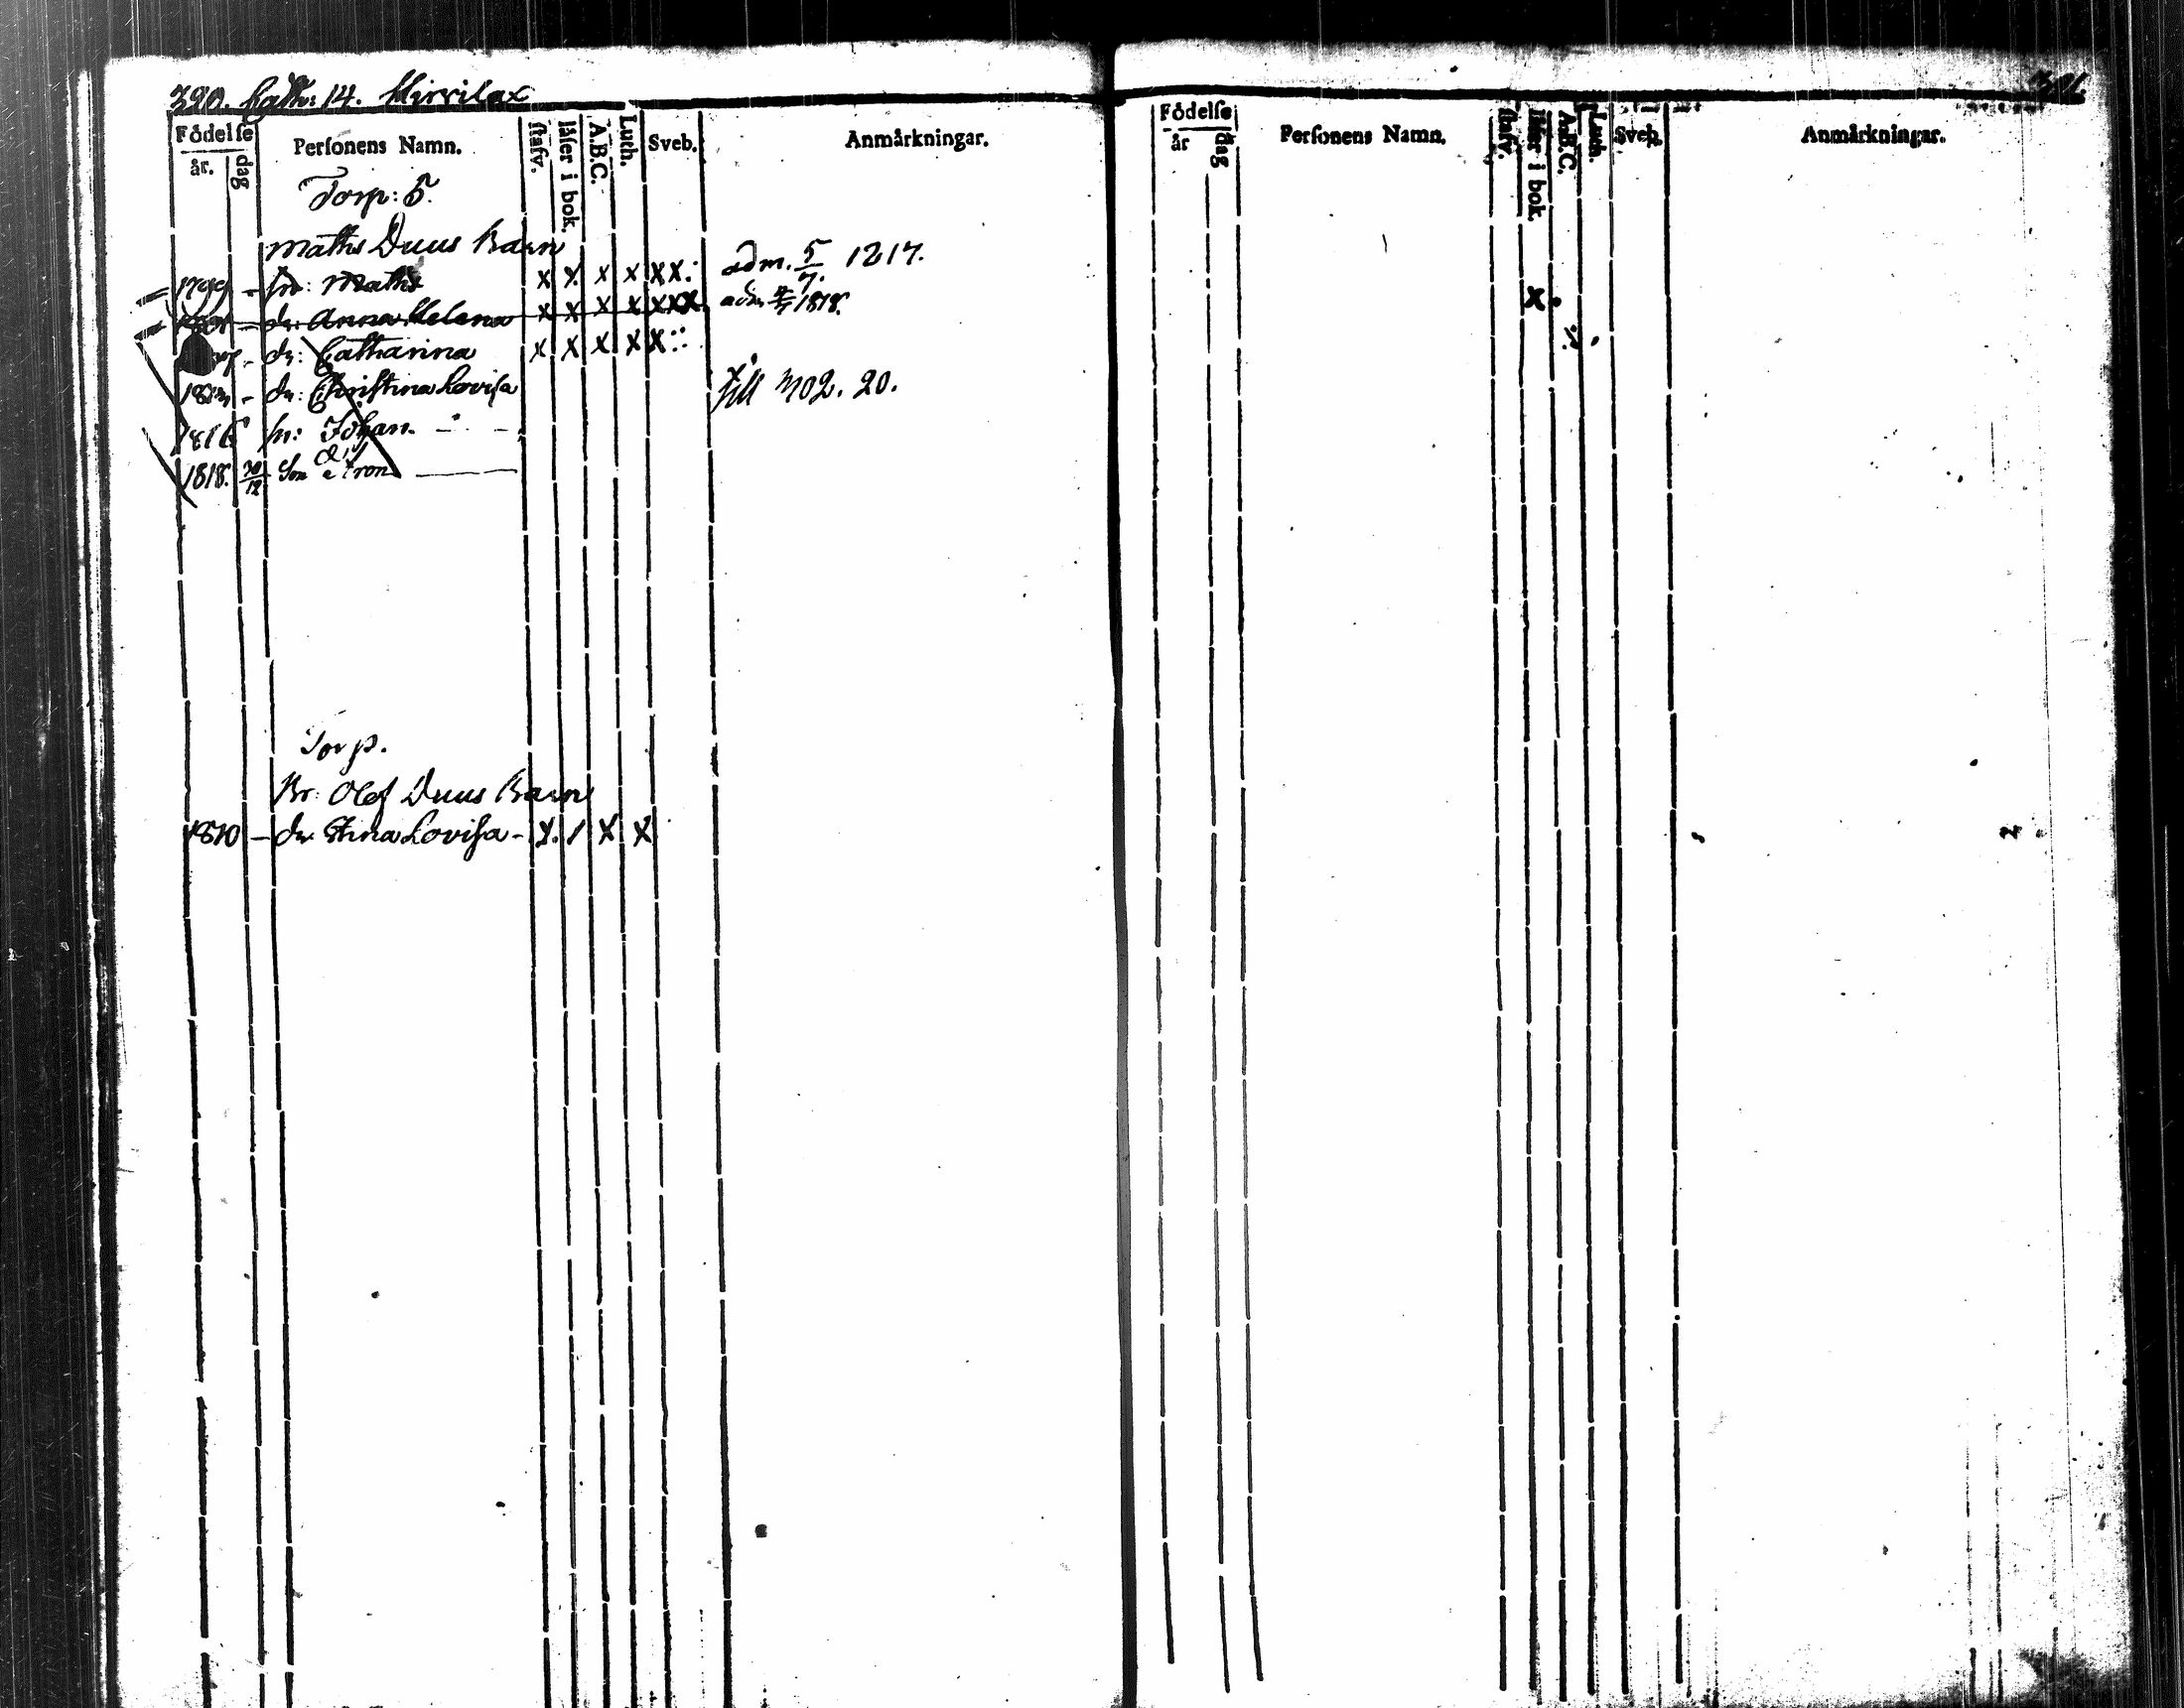 390. Cath: 14. Kirrilax
Födelſe
år. dag Perſonens Namn. ſtafv. läſer i bok. A.B.C. Luth. Sveb. Anmärkningar.
Torp: 5.
Maths Duus Barn
1799 - ſn: Maths x x x x xx: adm. 5/7. 1817.
1801 - dr: Anna Helena x x x x xxx adm 1818.
- dr: Catharina x x x x x::
- dr: Chriſtina Loviſa till 302. 20.
1816 ſn: Johan. - -
1818. 30/12 Son
Torp.
Br: Olof Duus Barn
1810 - dr Stina Loviſa - x. / x x
391
Födelſe
år dag Perſonens Namn. ſtafv. läſer i bok. A.B.C. Luth. Sveb. Anmärkningar.
x